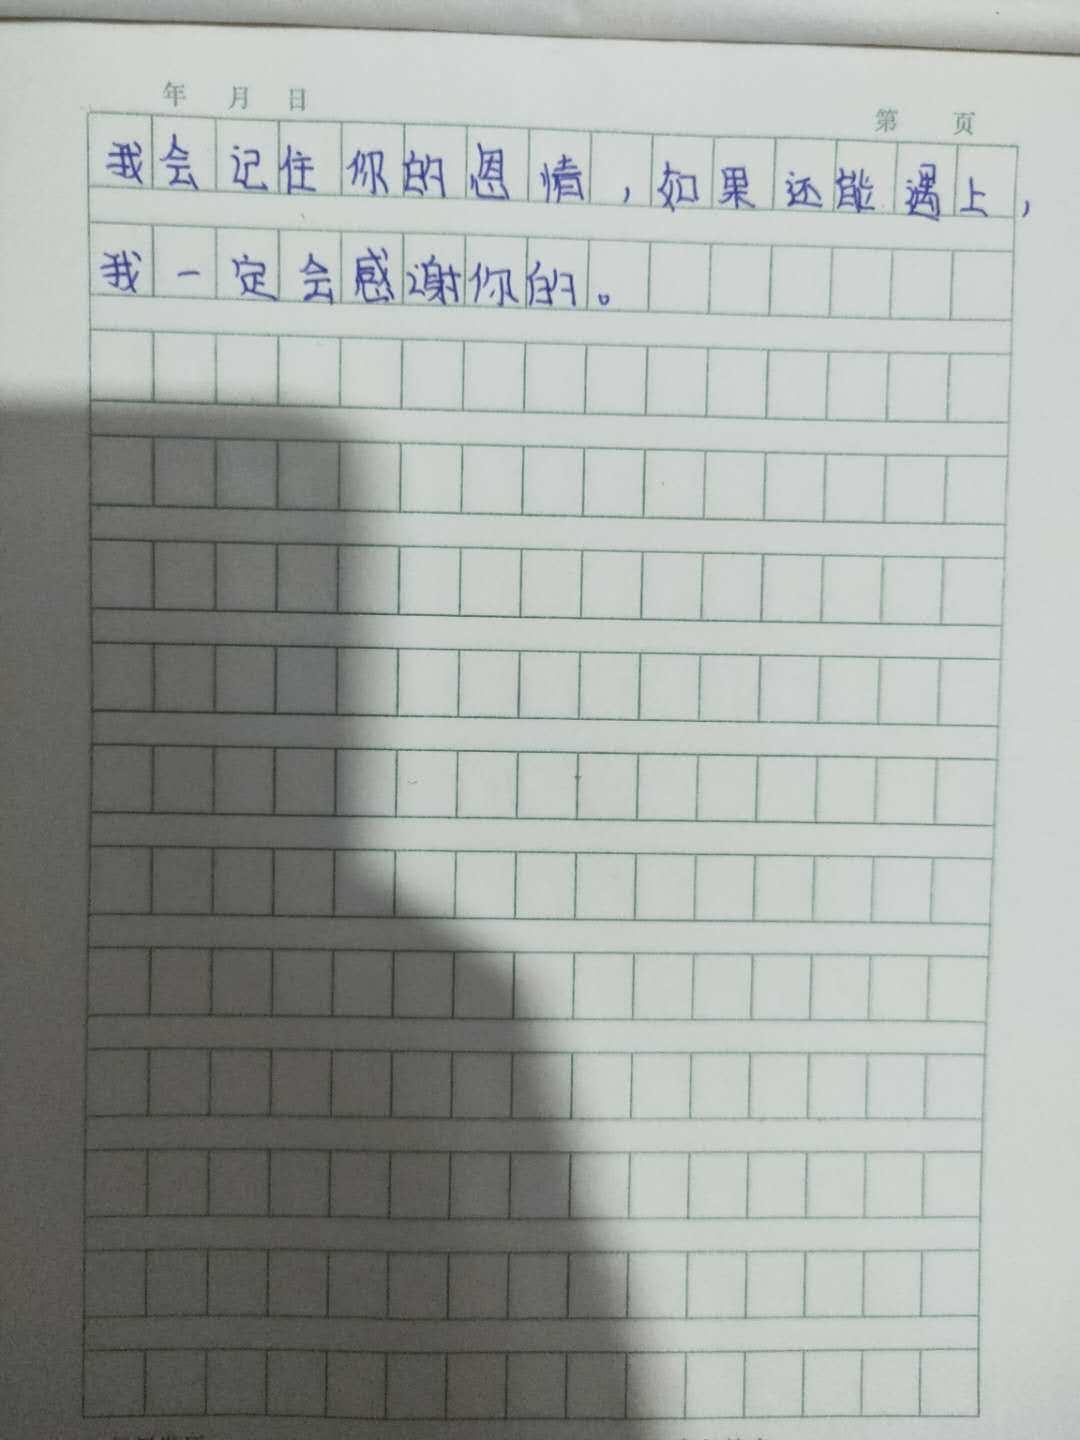 年 月 日
第 页
我会记住你的恩情，如果还能遇上，
我一定会感谢你的。